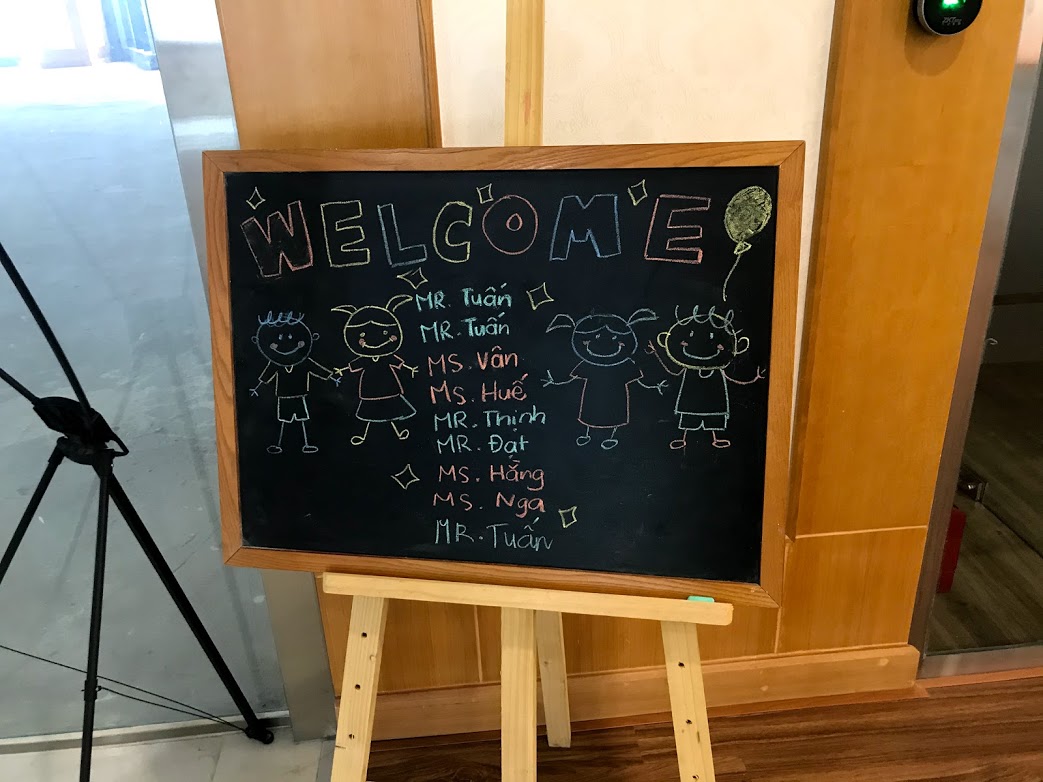 WELCOME
MR. Tuấn
MR. Tuấn
MS. Vân
MS. Huế
MR. Thịnh
MR. Đạt
MS. Hằng
MS. Nga
MR. Tuấn